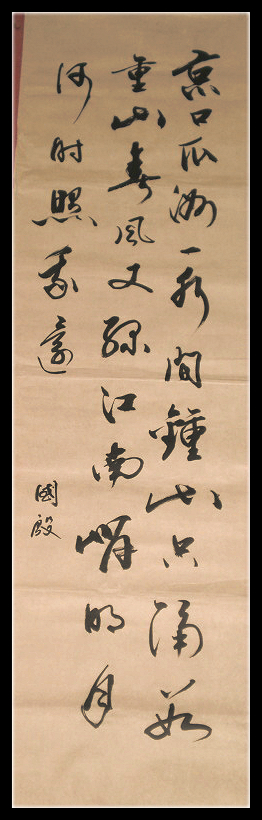 京口瓜洲一水間鍾山只隔数
重山春風又緑江南岸明月
何时照我還
國殷